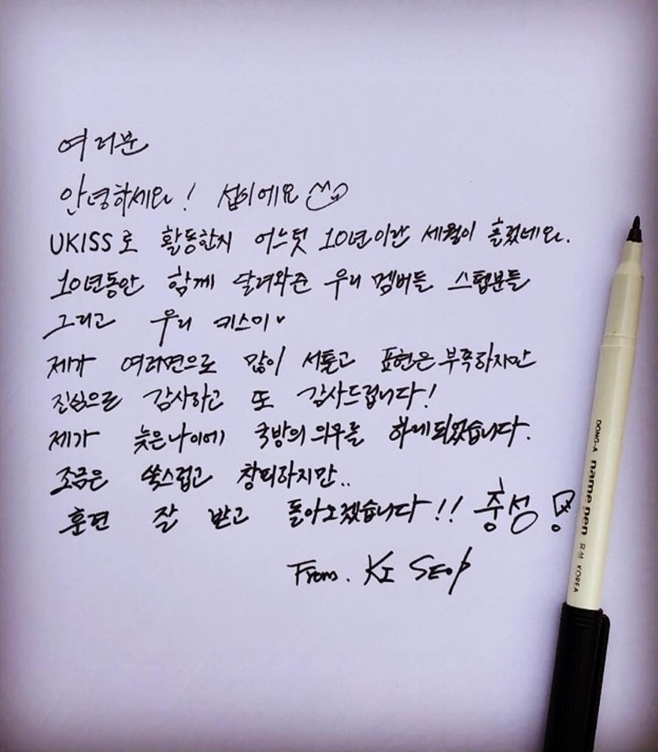 여러분
안녕하세요! 섭이에요
UKISS로 활동한지 어느덧 10년이란 세월이 흘렀네요.
10년동안 함께 달려와준 우리 멤버들 스탭분들
그리고 우리 키스미♥
제가 여러면으로 많이 서툴고 표현은 부족하지만
진심으로 감사하고 또 감사드립니다!
제가 늦은나이에 국방의 의무를 하게되었습니다.
조금은 쑥스럽고 창피하지만..
훈련 잘 받고 돌아오겠습니다!! 충성
From. KI SEOP
DONG-A name pen 유성 KOREA